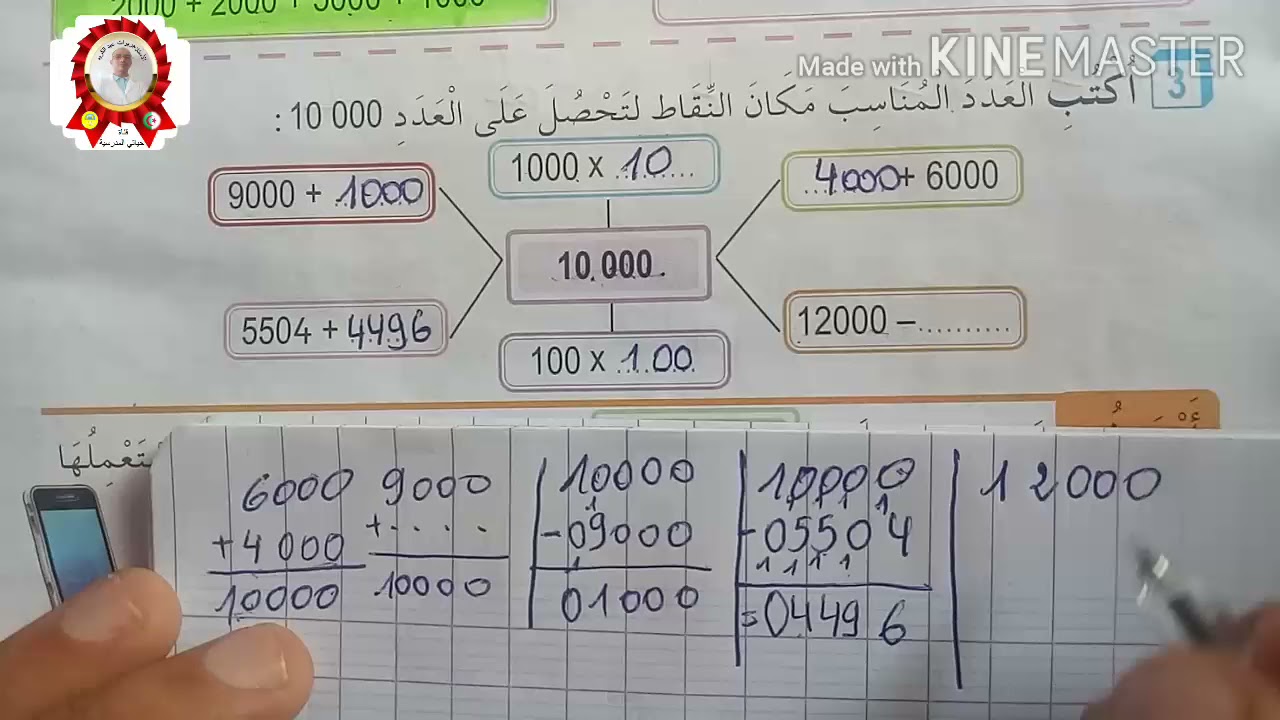 2000 + 2000 + 5000 + 1000
Made with KINEMASTER
3 أُكْتُبِ الْعَدَدَ الْمُنَاسِبَ مَكَانَ النِّقَاط لتَحْصُلَ عَلَى الْعَدَدِ 10 000 :
قناة
حياتي المدرسية
9000 + 1000
1000 x 10...
...4000+ 6000
10 000
5504 + 4496
100 x 100
12000 –..........
تَعْمِلُهَا
6000
+4000
10000
9000
+ . . . .
10000
10000
-09000
01000
10000
-05504
=04496
12000